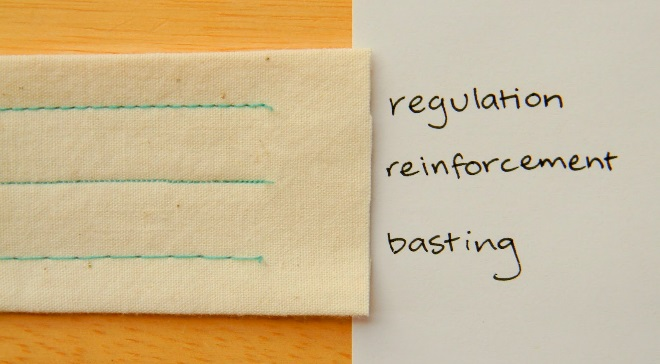 regulation
reinforcement
basting